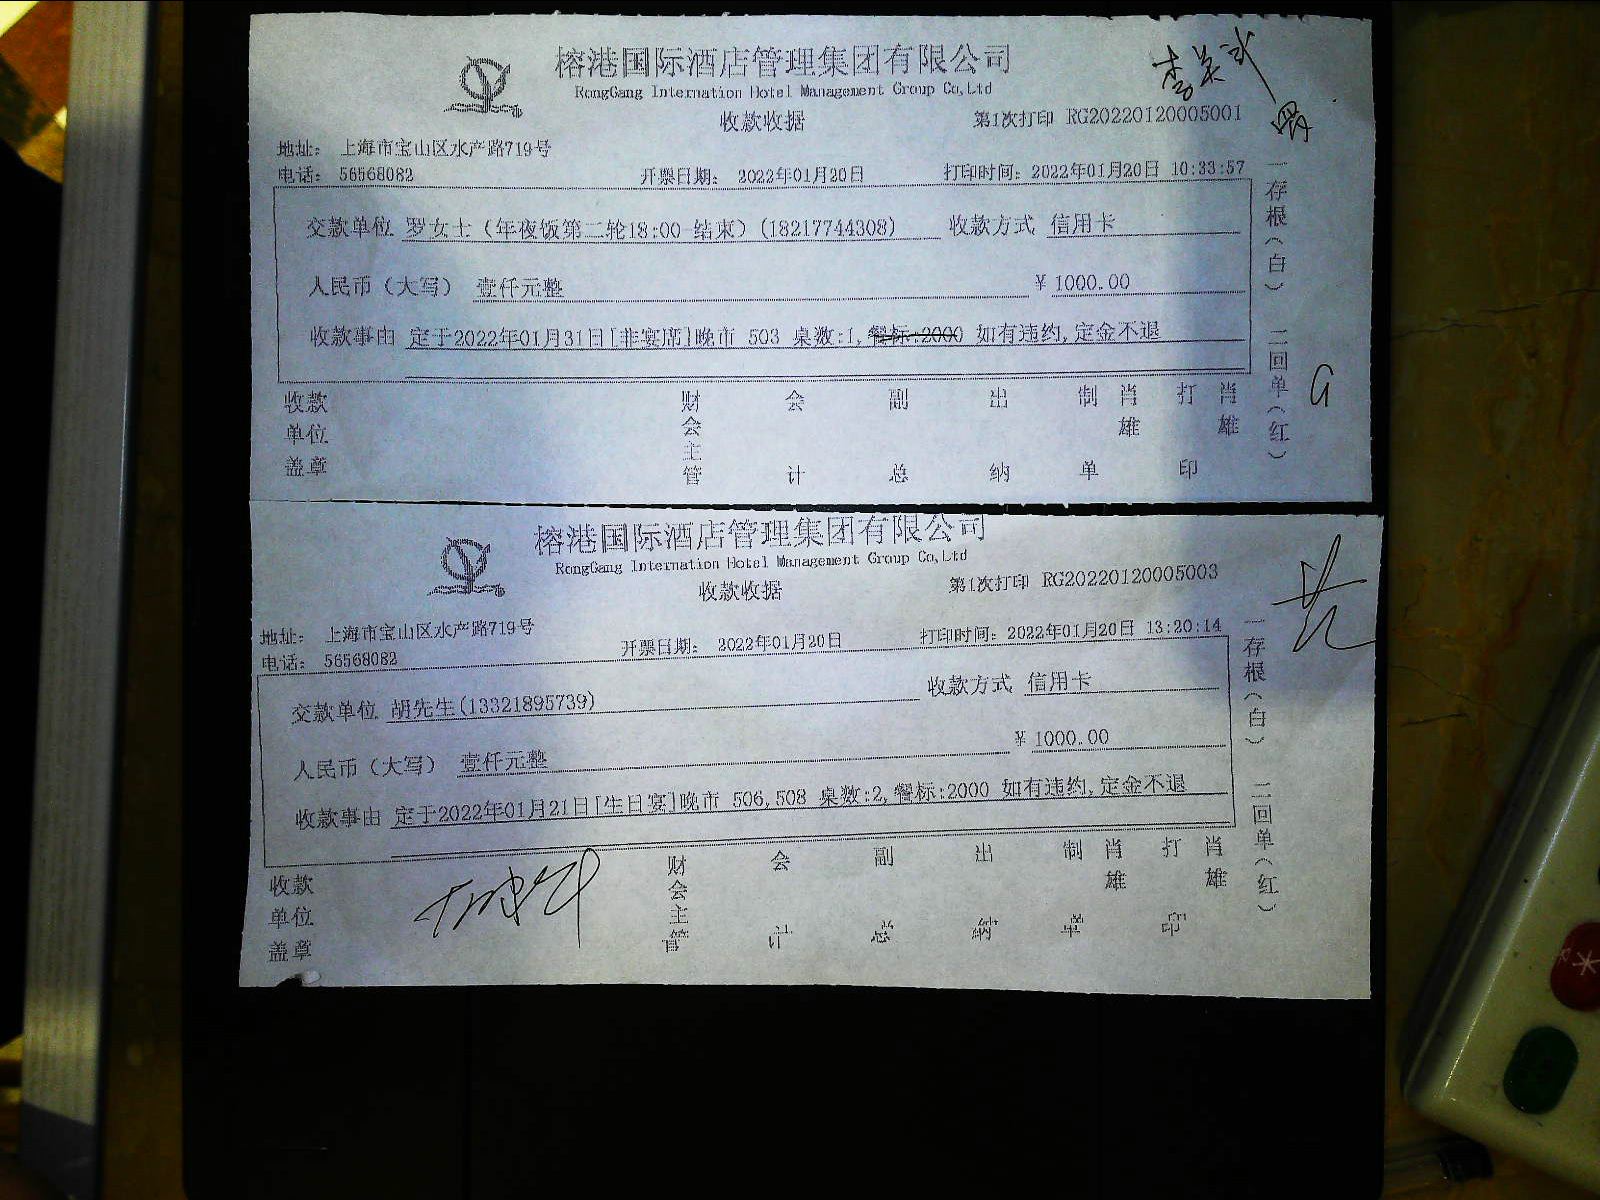 榕港国际酒店管理集团有限公司
RongGang Internation Hotel Management Group Co,Ltd
收款收据
第1次打印 RG20220120005001
地址： 上海市宝山区水产路719号
电话： 56568082 开票日期： 2022年01月20日 打印时间：2022年01月20日 10:33:57
交款单位 罗女士（年夜饭第二轮18:00-结束）(18217744308) 收款方式 信用卡
人民币（大写） 壹仟元整 ￥1000.00
收款事由 定于2022年01月31日[非宴席]晚市 503 桌数:1,餐标:2000 如有违约,定金不退
收款单位盖章 财会主管 会计 副总 出纳 制单 肖雄 打印 肖雄
一存根（白） 二回单（红）
榕港国际酒店管理集团有限公司
RongGang Internation Hotel Management Group Co,Ltd
收款收据
第1次打印 RG20220120005003
地址： 上海市宝山区水产路719号
电话： 56568082 开票日期： 2022年01月20日 打印时间：2022年01月20日 13:20:14
交款单位 胡先生(13321895739) 收款方式 信用卡
人民币（大写） 壹仟元整 ￥1000.00
收款事由 定于2022年01月21日[生日宴]晚市 506,508 桌数:2,餐标:2000 如有违约,定金不退
收款单位盖章 财会主管 会计 副总 出纳 制单 肖雄 打印 肖雄
一存根（白） 二回单（红）